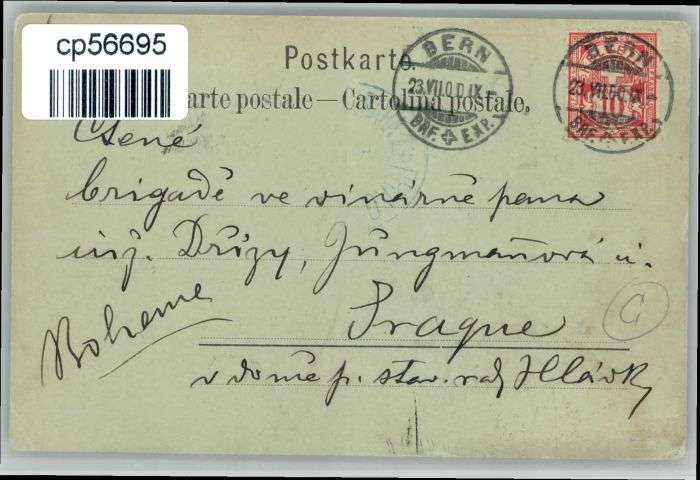 cp56695
Postkarte.
Carte postale — Cartolina postale.
BERN
23.VII.00.IX-
BRF. EXP.
BERN
23.VII.00.IX-
BRF. EXP.
10
Ctěné
brigadě ve vinárně pana
inž. Družy, Jungmanová u.
Prague
Boheme
v domě p. stav. rady Hlávky
G